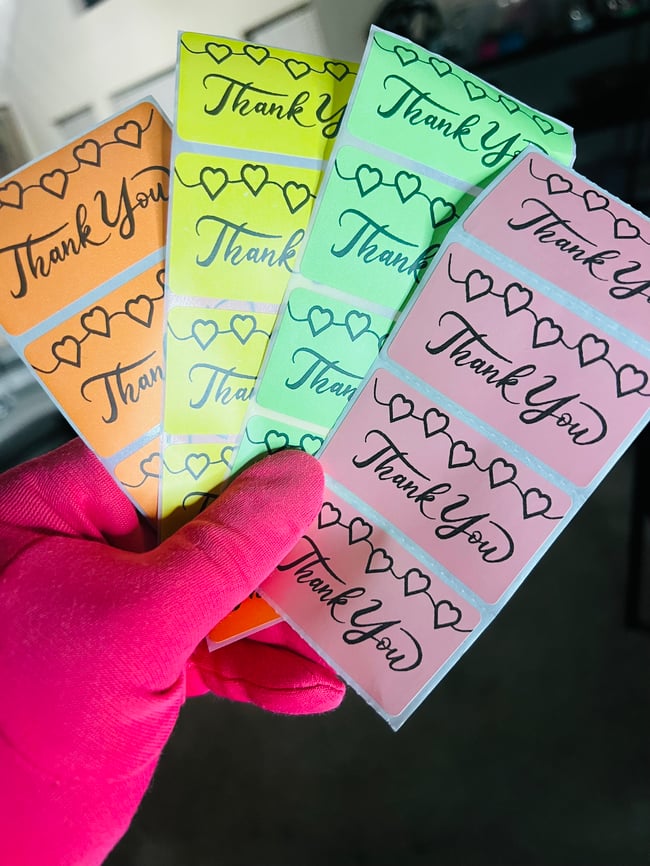 Thank You
Than
Thank Y
Thank
Than
Thank You
Thank
Than
Thank Y
Thank You
Thank You
Thank You